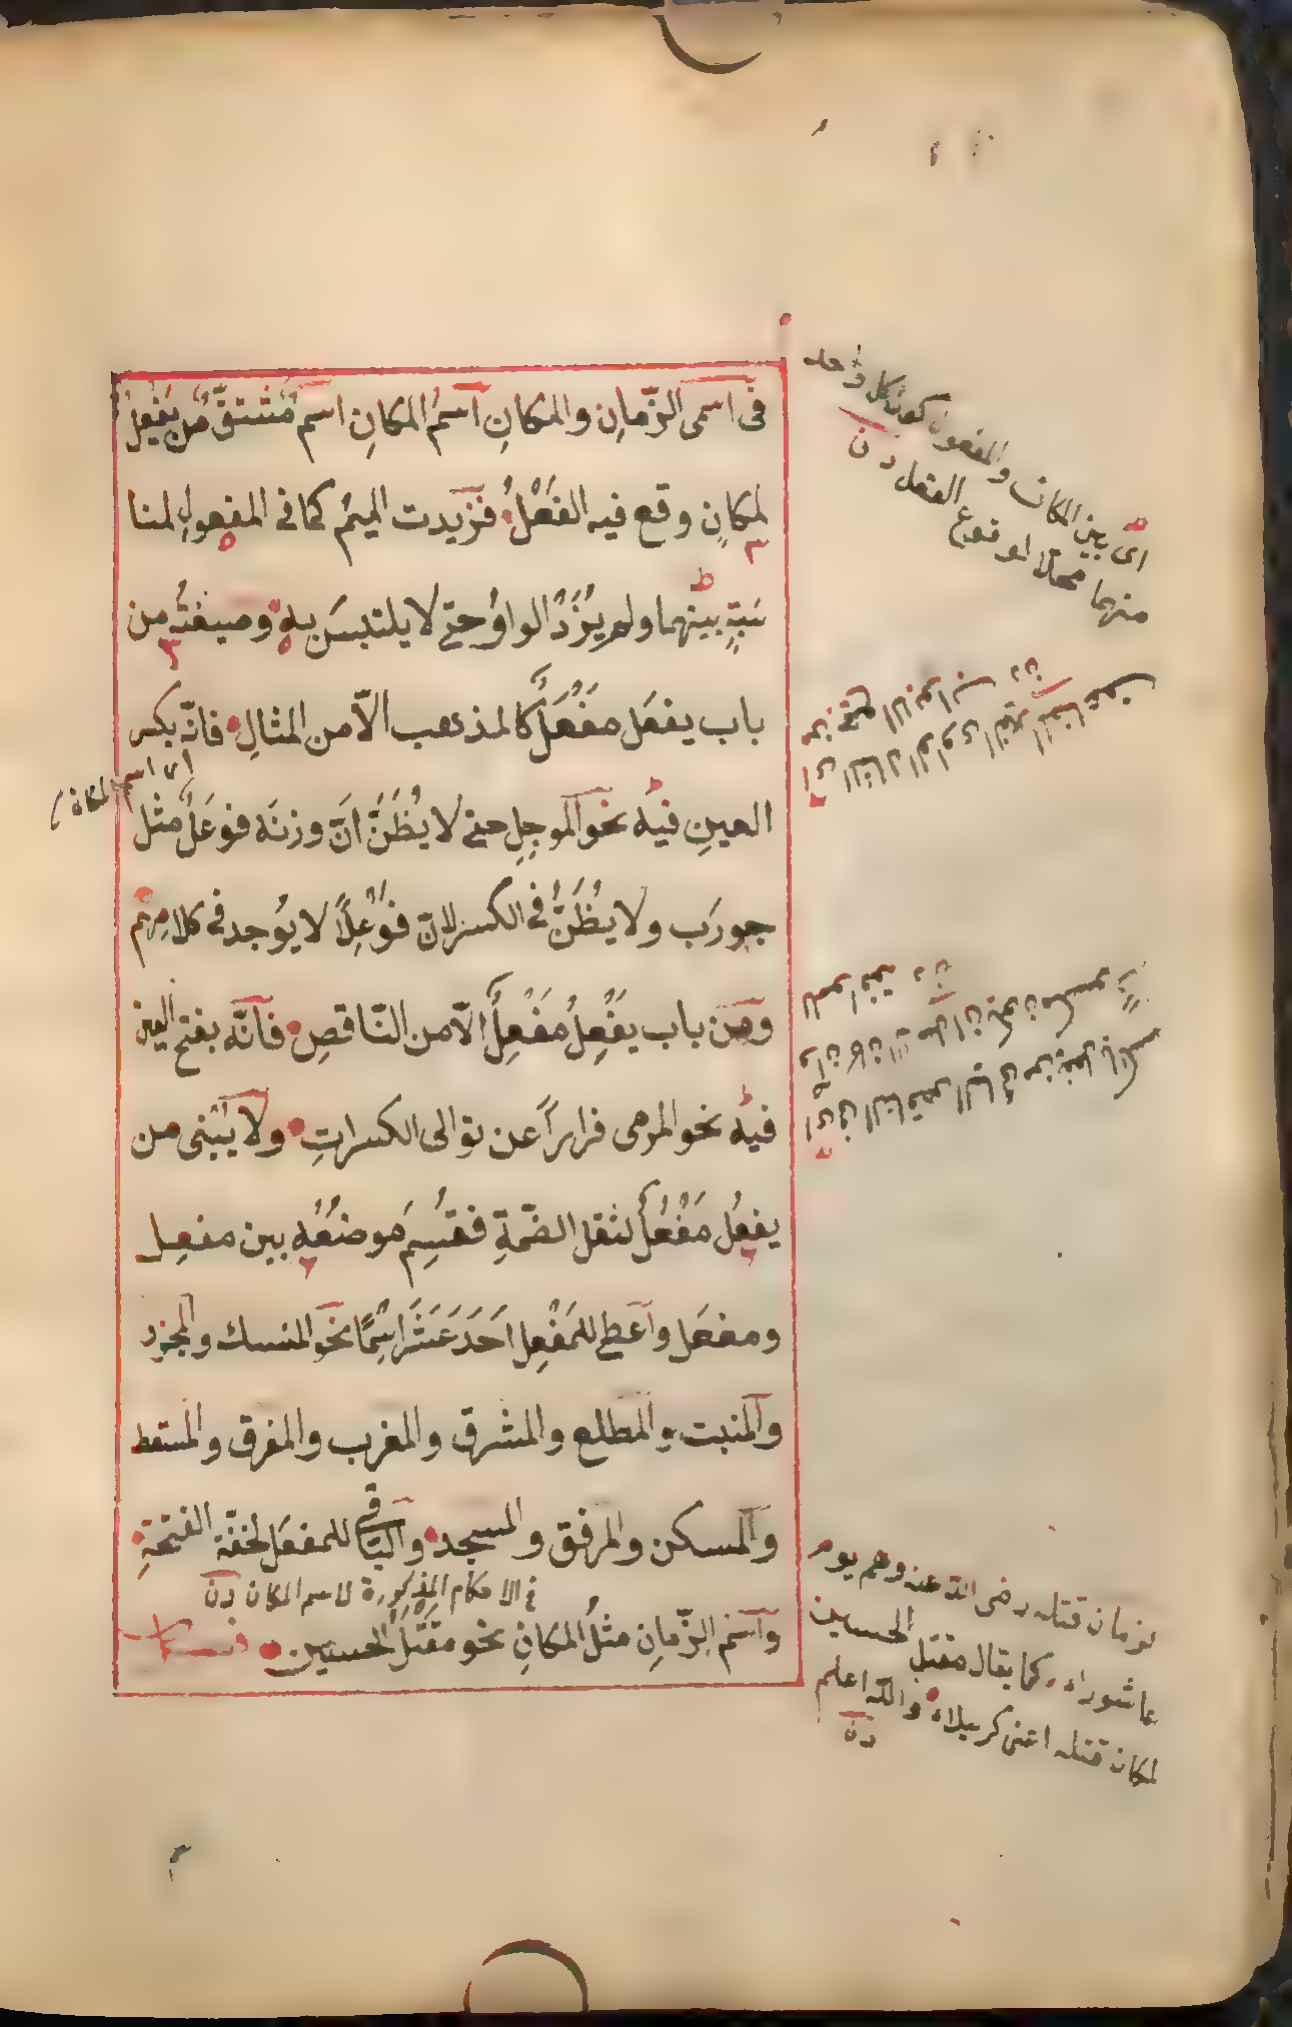 فى اسمى الزّمانِ والمكانِ اسمُ المكانِ اسم مُشتقٌّ مِن يَفْعِلُ
لمكانٍ وقع فيه الفَعْلُ فزيدت الميمُ كما فى المفعولِ لمنا
سَبَةٍ بينهما ولم يُزَدْ الواوُ حتى لا يلتبسَ به وصيغتُه من
باب يفعَل مَفْعَلٌ كالمذهب الّا من المثالِ فانّه بكسر
اى اسم المكان
العينِ فيه نحو الموجِلِ حتى لا يُظَنَّ انَّ وزنَه فوعَلٌ مثل
جورَب ولا يُظَنُّ فى الكسر لانّ فَوْعِلًا لا يُوجد فى كلامِهم
ومن باب يَفْعِلُ مَفْعِلٌ الّا من النّاقصِ فانّه بفتح العين
فيه نحو المرمى فرارًا عن توالى الكسراتِ ولا يُبْنى من
يفعُل مَفْعُلٌ لثقل الضمّةِ فقُسِمَ موضعُه بين مفعِل
ومفعَل واعطى للمَفْعِل اَحَدَ عَشَرَ اسْمًا نحو المنسك والمجزر
والمنبت والمطلع والمشرق والمغرب والمفرق والمسقط
والمسكن والمرفق والمسجد والباقى للمفعَل لخفّة الفتحةِ
فى الاحكام المذكورة لاسم المكان
واسم الزّمانِ مثلُ المكانِ نحو مَقْتَل الحسين
اى بين المكان والمفعول كونه كل واحد
منهما محلا لوقوع الفعل
لزمان قتله رضى الله عنه وهم يوم
عاشوراء كما يقال مقتل الحسين
لمكان قتله اعنى كربلاء والله اعلم